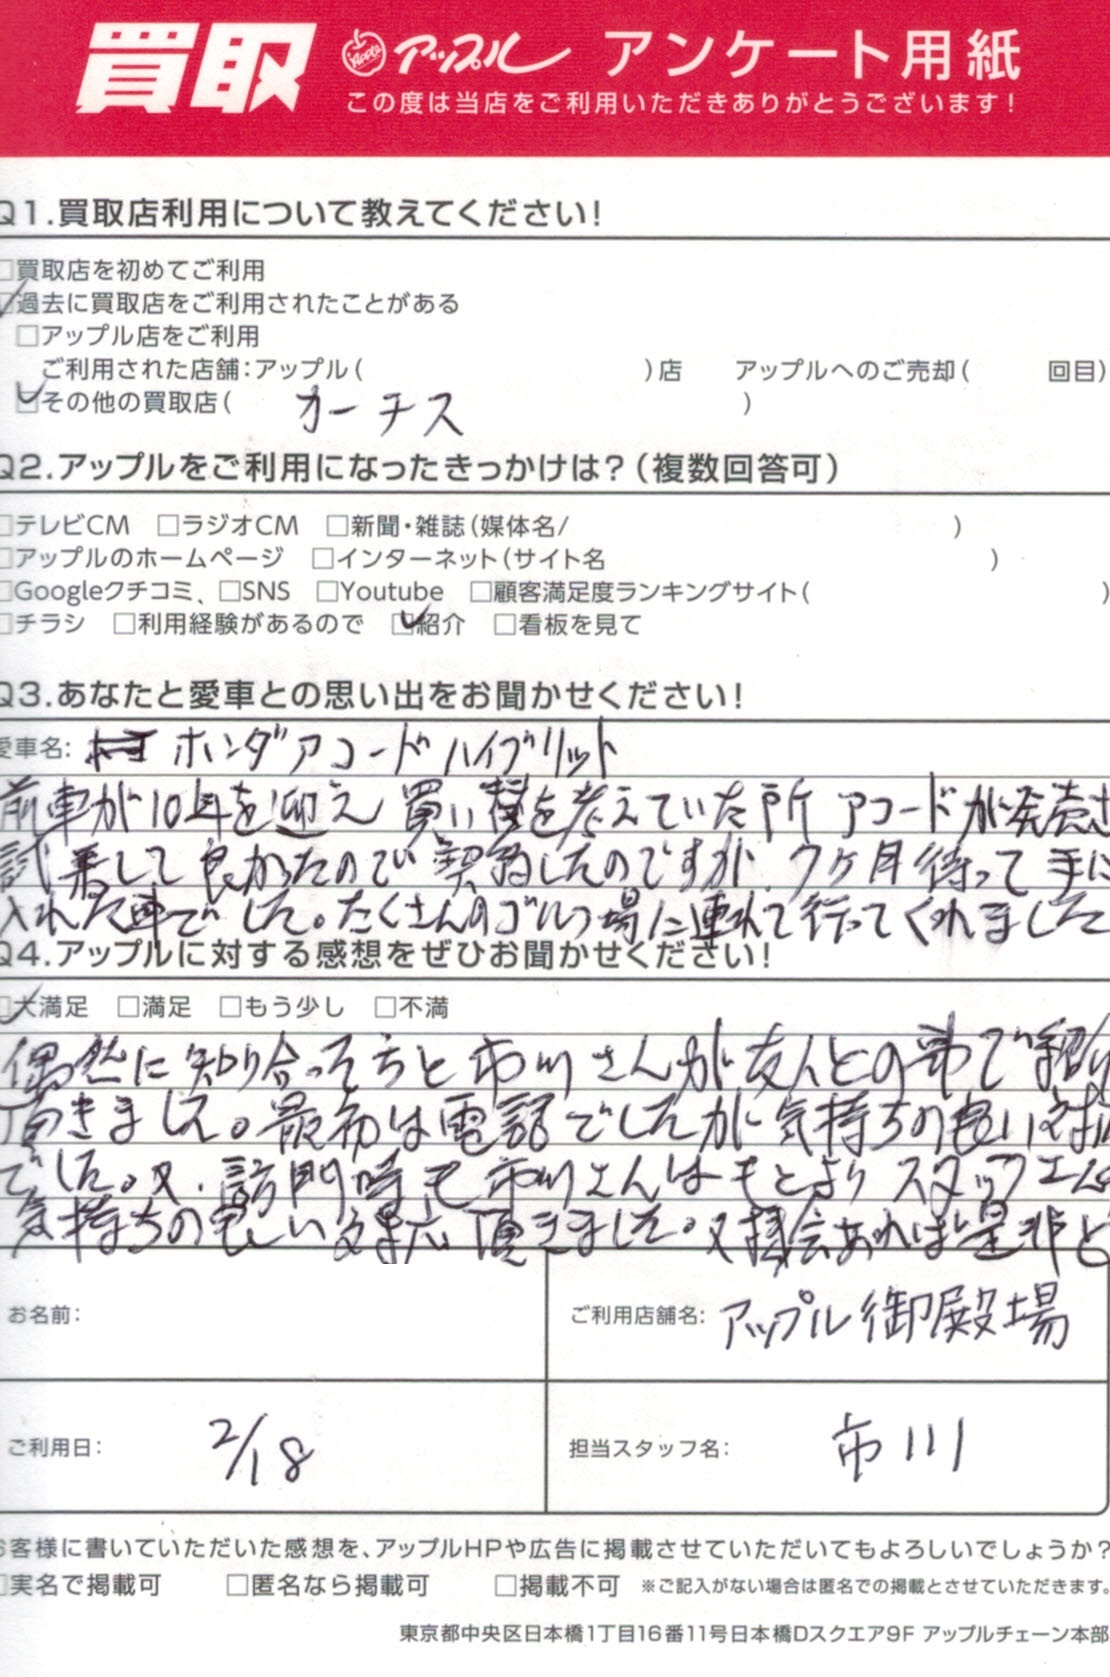 買取 Apple アップル アンケート用紙
この度は当店をご利用いただきありがとうございます!
Q1.買取店利用について教えてください!
□買取店を初めてご利用
☑過去に買取店をご利用されたことがある
□アップル店をご利用
ご利用された店舗:アップル( )店 アップルへのご売却( 回目)
☑その他の買取店( カーチス )
Q2.アップルをご利用になったきっかけは?(複数回答可)
□テレビCM □ラジオCM □新聞・雑誌(媒体名/ )
□アップルのホームページ □インターネット(サイト名 )
□Googleクチコミ、□SNS □Youtube □顧客満足度ランキングサイト( )
□チラシ □利用経験があるので ☑紹介 □看板を見て
Q3.あなたと愛車との思い出をお聞かせください!
愛車名: ホンダアコードハイブリット
前車が10年を迎え 買い替を考えていた所 アコードが発売さ
試乗して良かったので契約したのですが、7ヶ月待って手に
入れた車でした。たくさんのゴルフ場に連れて行ってくれました
Q4.アップルに対する感想をぜひお聞かせください!
☑大満足 □満足 □もう少し □不満
偶然に知り合った方と市川さんが友人との事で紹介
頂きました。最初は電話でしたが気持ちの良い対応
でした。又、訪問時も市川さんはもとよりスタッフさん
気持ちの良い対応頂きました。又機会あれば是非と
お名前: ご利用店舗名: アップル御殿場
ご利用日: 2/18 担当スタッフ名: 市川
お客様に書いていただいた感想を、アップルHPや広告に掲載させていただいてもよろしいでしょうか?
□実名で掲載可 □匿名なら掲載可 □掲載不可 ※ご記入がない場合は匿名での掲載とさせていただきます。
東京都中央区日本橋1丁目16番11号日本橋Dスクエア9F アップルチェーン本部